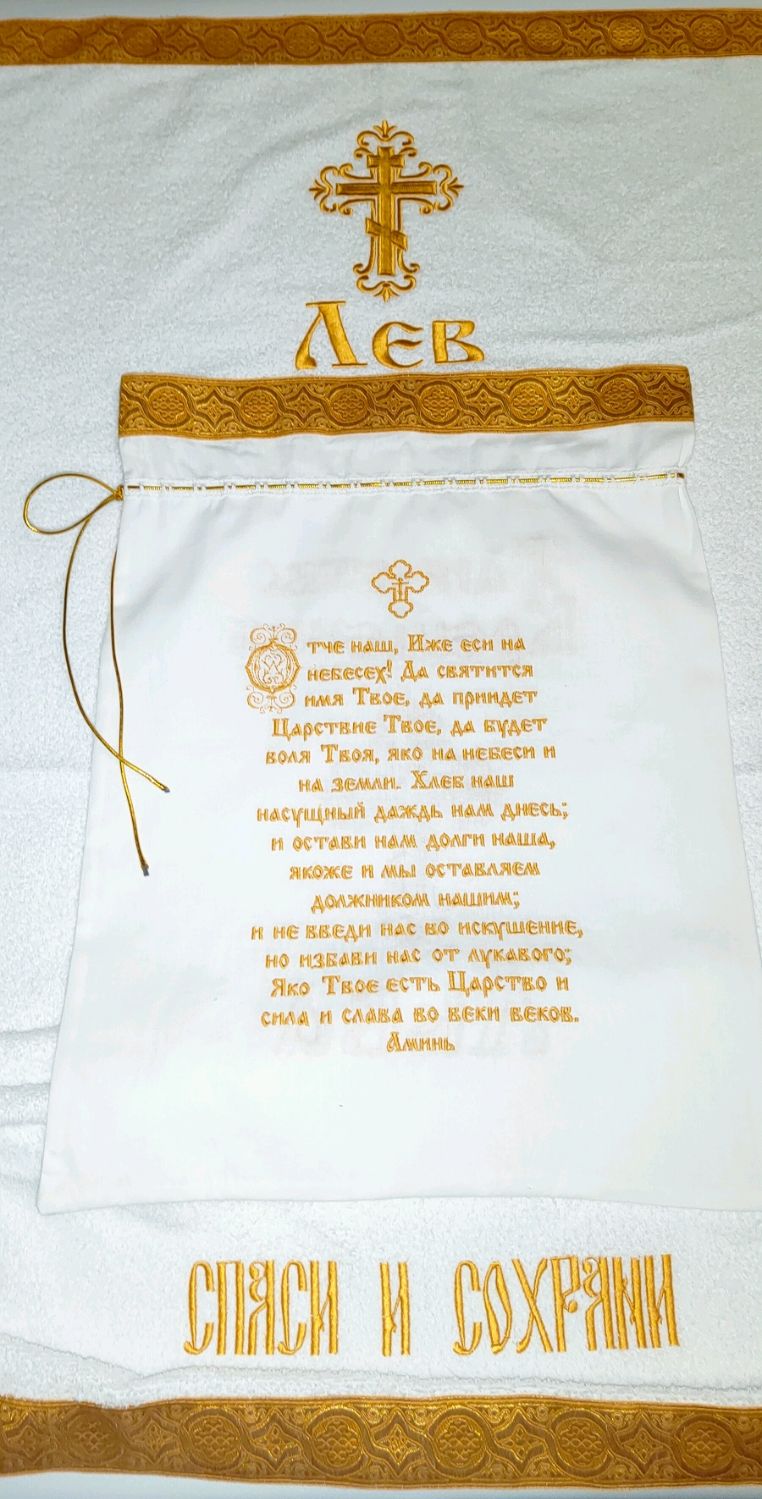 Лев
Отче наш, Иже еси на
небесех! Да святится
имя Твое, да приидет
Царствие Твое, да будет
воля Твоя, яко на небеси и
на земли. Хлеб наш
насущный даждь нам днесь;
и остави нам долги наша,
якоже и мы оставляем
должником нашим;
и не введи нас во искушение,
но избави нас от лукавого;
Яко Твое есть Царство и
сила и слава во веки веков.
Аминь
СПАСИ И СОХРАНИ